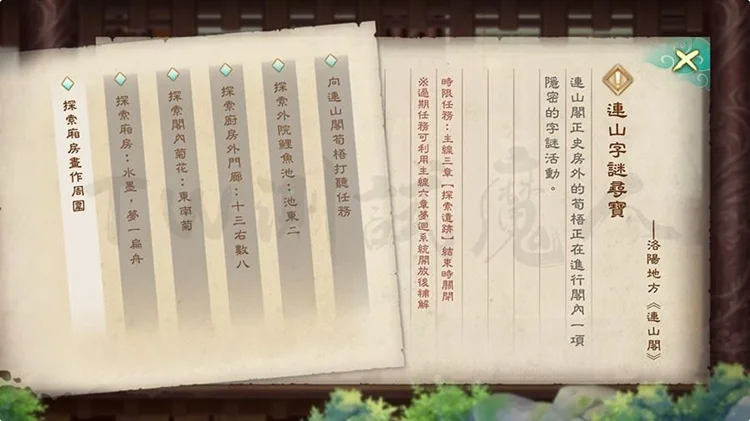 連山字謎尋寶
──洛陽地方《連山閣》
連山閣正史房外的荀梧正在進行閣內一項
隱密的字謎活動。
時限任務：主線三章【探索遺跡】結束時關閉
※過期任務可利用主線六章夢迴系統開放後補解
向連山閣荀梧打聽任務
探索外院鯉魚池：池東二
探索廚房外門廊：十三右數八
探索閣內菊花：東南菊
探索廂房：水墨，夢一扁舟
探索廂房畫作周圍